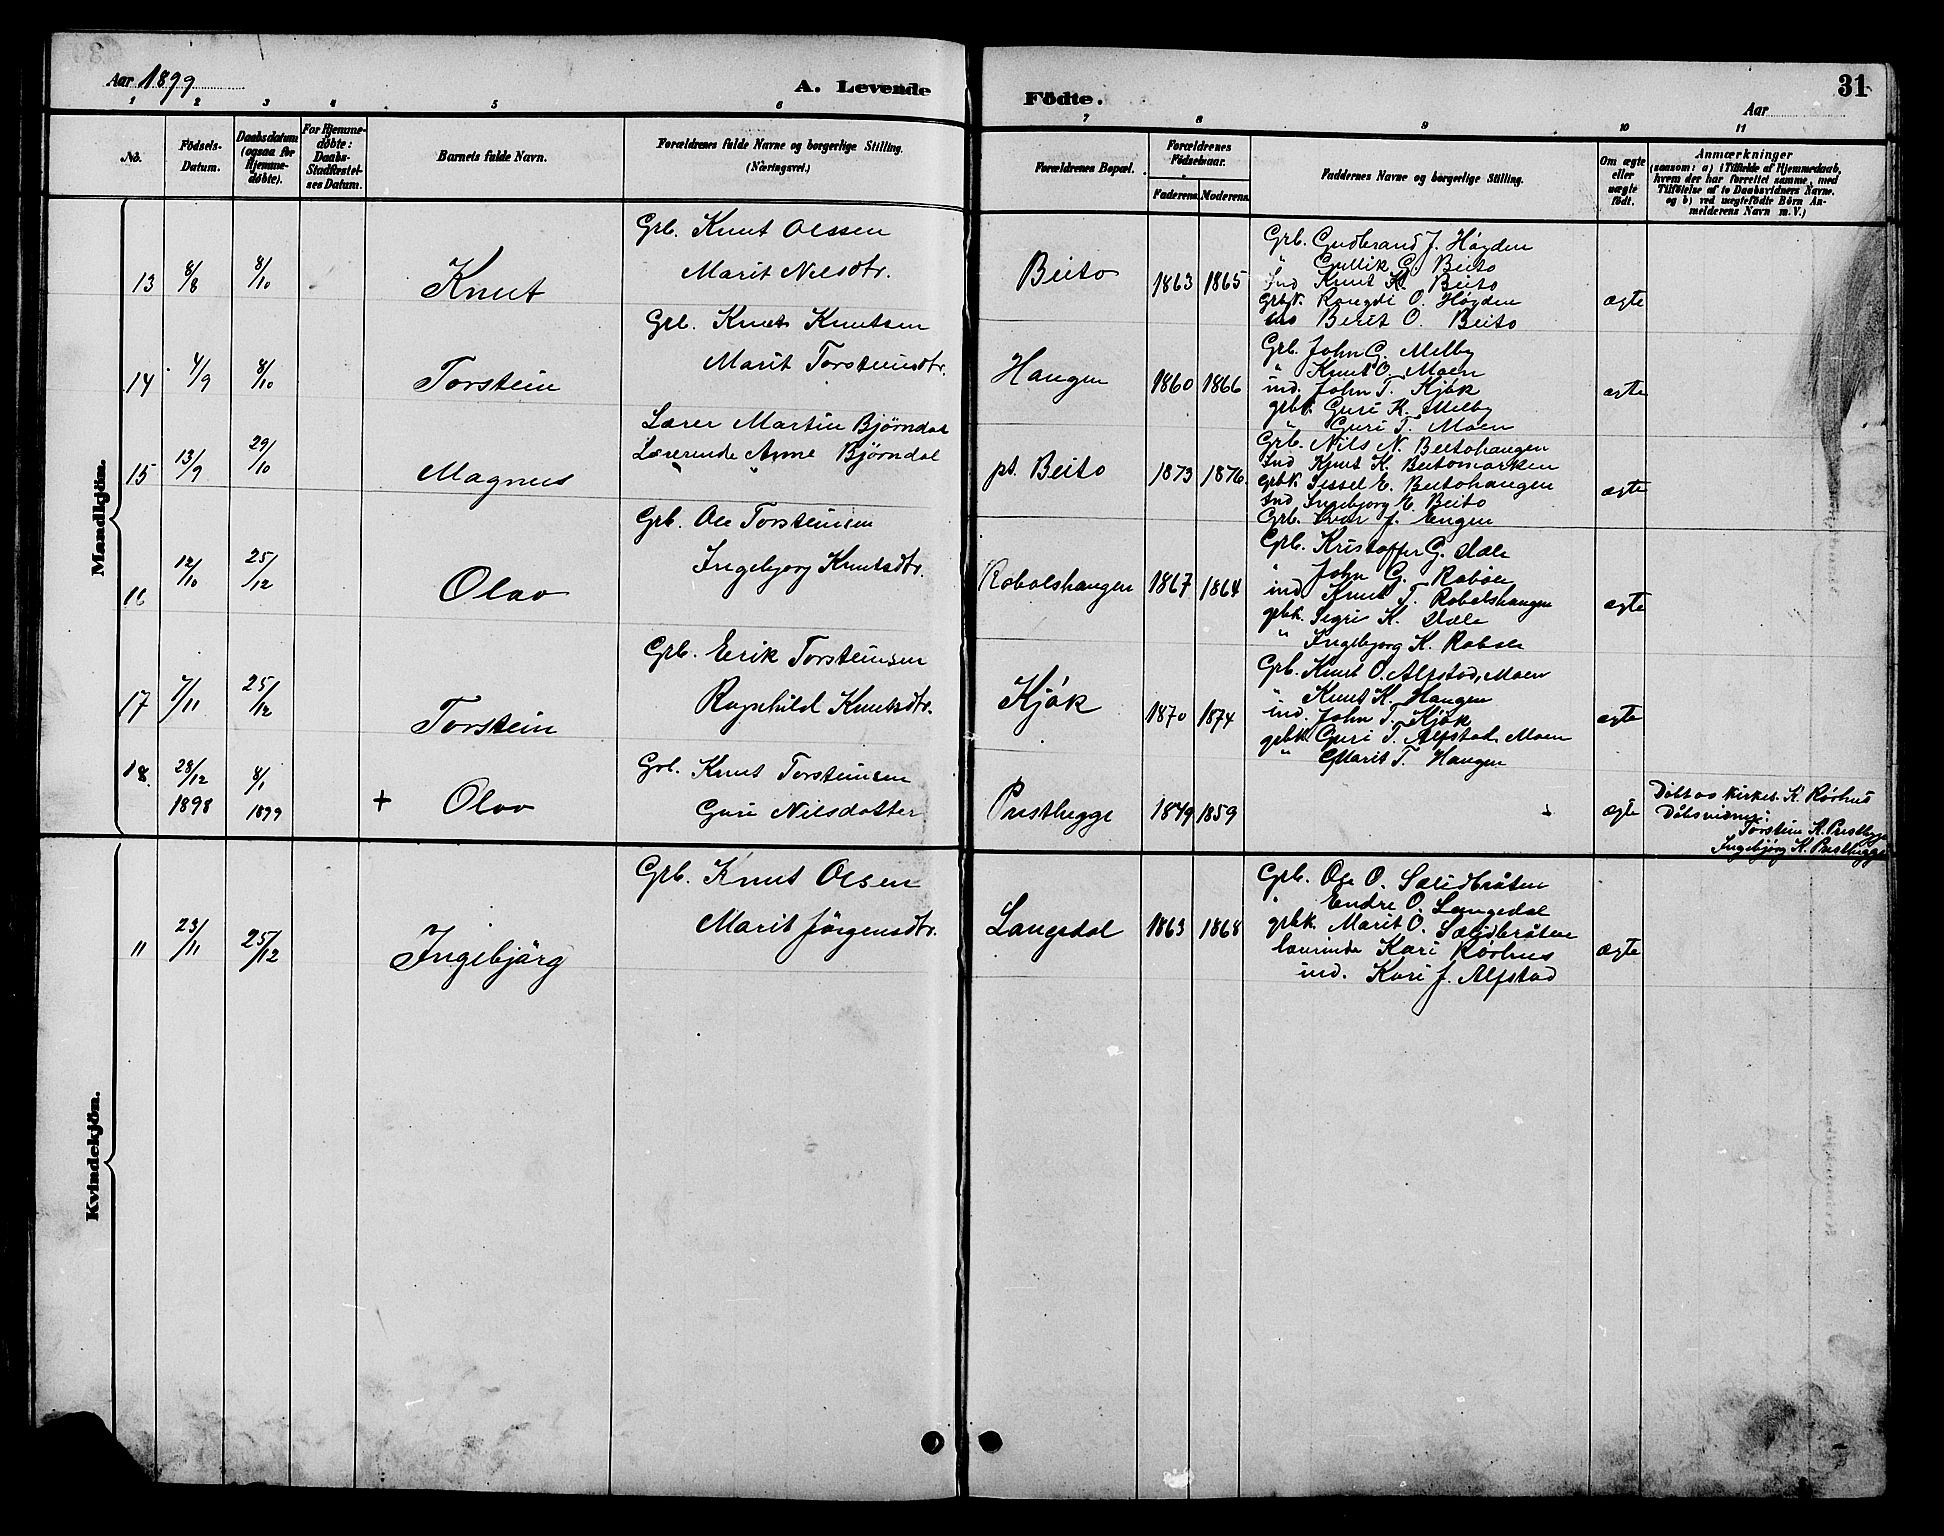 Aar 1899
A. Levende Födte.
Aar
31
1 2 3 4 5 6 7 8 9 10 11
No.
Födsels-
Datum.
Daabsdatum
(ogsaa for
Hjemme-
döbte).
For Hjemme-
döbte:
Daabs-
Stadfæstel-
ses Datum.
Barnets fulde Navn.
Forældrenes fulde Navne og borgerlige Stilling.
(Næringsvei.)
Forældrenes Bopæl.
Forældrenes
Födselsaar.
Faderens. Moderens.
Faddernes Navne og borgerlige Stilling.
Om ægte
eller
uægte
födt.
Anmærkninger
(saasom: a) i Tilfælde af Hjemmedaab,
hvem der har forrettet samme, med
Tilföielse af to Daabsvidners Navne.
og b) ved uægtefödte Börn An-
melderens Navn m. V.)
Mandkjön.
13 8/8 8/10 Knut
Grb. Knut Olssen
Marit Nilsdtr.
Beito 1863 1865
Grb. Gudbrand J. Høyden
" Gullik G. Beito
Ind Knut K Beito
Grbk. Rangdi O. Høyden
Berit O. Beito
ægte
14 4/9 8/10 Torstein
Grb. Knut Knutsen
Marit Torsteinsdtr.
Haugen 1860 1866
Grb. John G. Melby
" Knut O. Moen
ind. John T. Kjök
grbk. Guri K. Melby
" Guri T. Moen
ægte
15 13/9 29/10 Magnus
Lærer Martin Bjørndal
Lærerinde Anne Bjørndal
pt. Beito 1873 1876
Grb. Nils N. Beitohaugen
Ind Knut K. Beitomarken
Grbk Sessel E. Beitohaugen
Ind Ingebjorg K. Beito
Grb. Ivar J. Engen
ægte
16 12/10 25/12 Olav
Grb. Ole Torsteinsen
Ingebjorg Knutsdtr.
Robolshaugen 1867 1864
Grb. Kristoffer G. Dale
" John G. Robøle
ind. Knut T. Robolshaugen
grbk. Sigri K. Dale
" Ingebjorg K. Robole
ægte
17 7/11 25/12 Torstein
Grb. Erik Torsteinsen
Ragnhild Knutsdtr.
Kjök 1870 1874
Grb. Knut O. Alfstad, Moen
" Knut K. Haugen
ind. John T. Kjök
grbk. Guri T. Alfstad, Moen
" Marit T. Haugen
ægte
18. 28/12 1898 8/1 1899 + Olav
Grb. Knut Torsteinsen
Guri Nilsdotter
Prestbygge 1849 1859
ægte
Döbt av kirkes. K. Rörhus
Döbsvidner:
Torstein K. Prestbygge
Ingebjörg K. Prestbygge
Kvindekjön.
11 23/11 25/12 Ingebjörg
Grb. Knut Olsen
Marit Jörgensdtr.
Langedal 1863 1868
Grb. Ole O. Sælidbråten
" Endre O. Langedal
grbk. Marit O. Sælidbråten
lærerinde Kari Rörhus
ind. Kari J. Alfstad
ægte